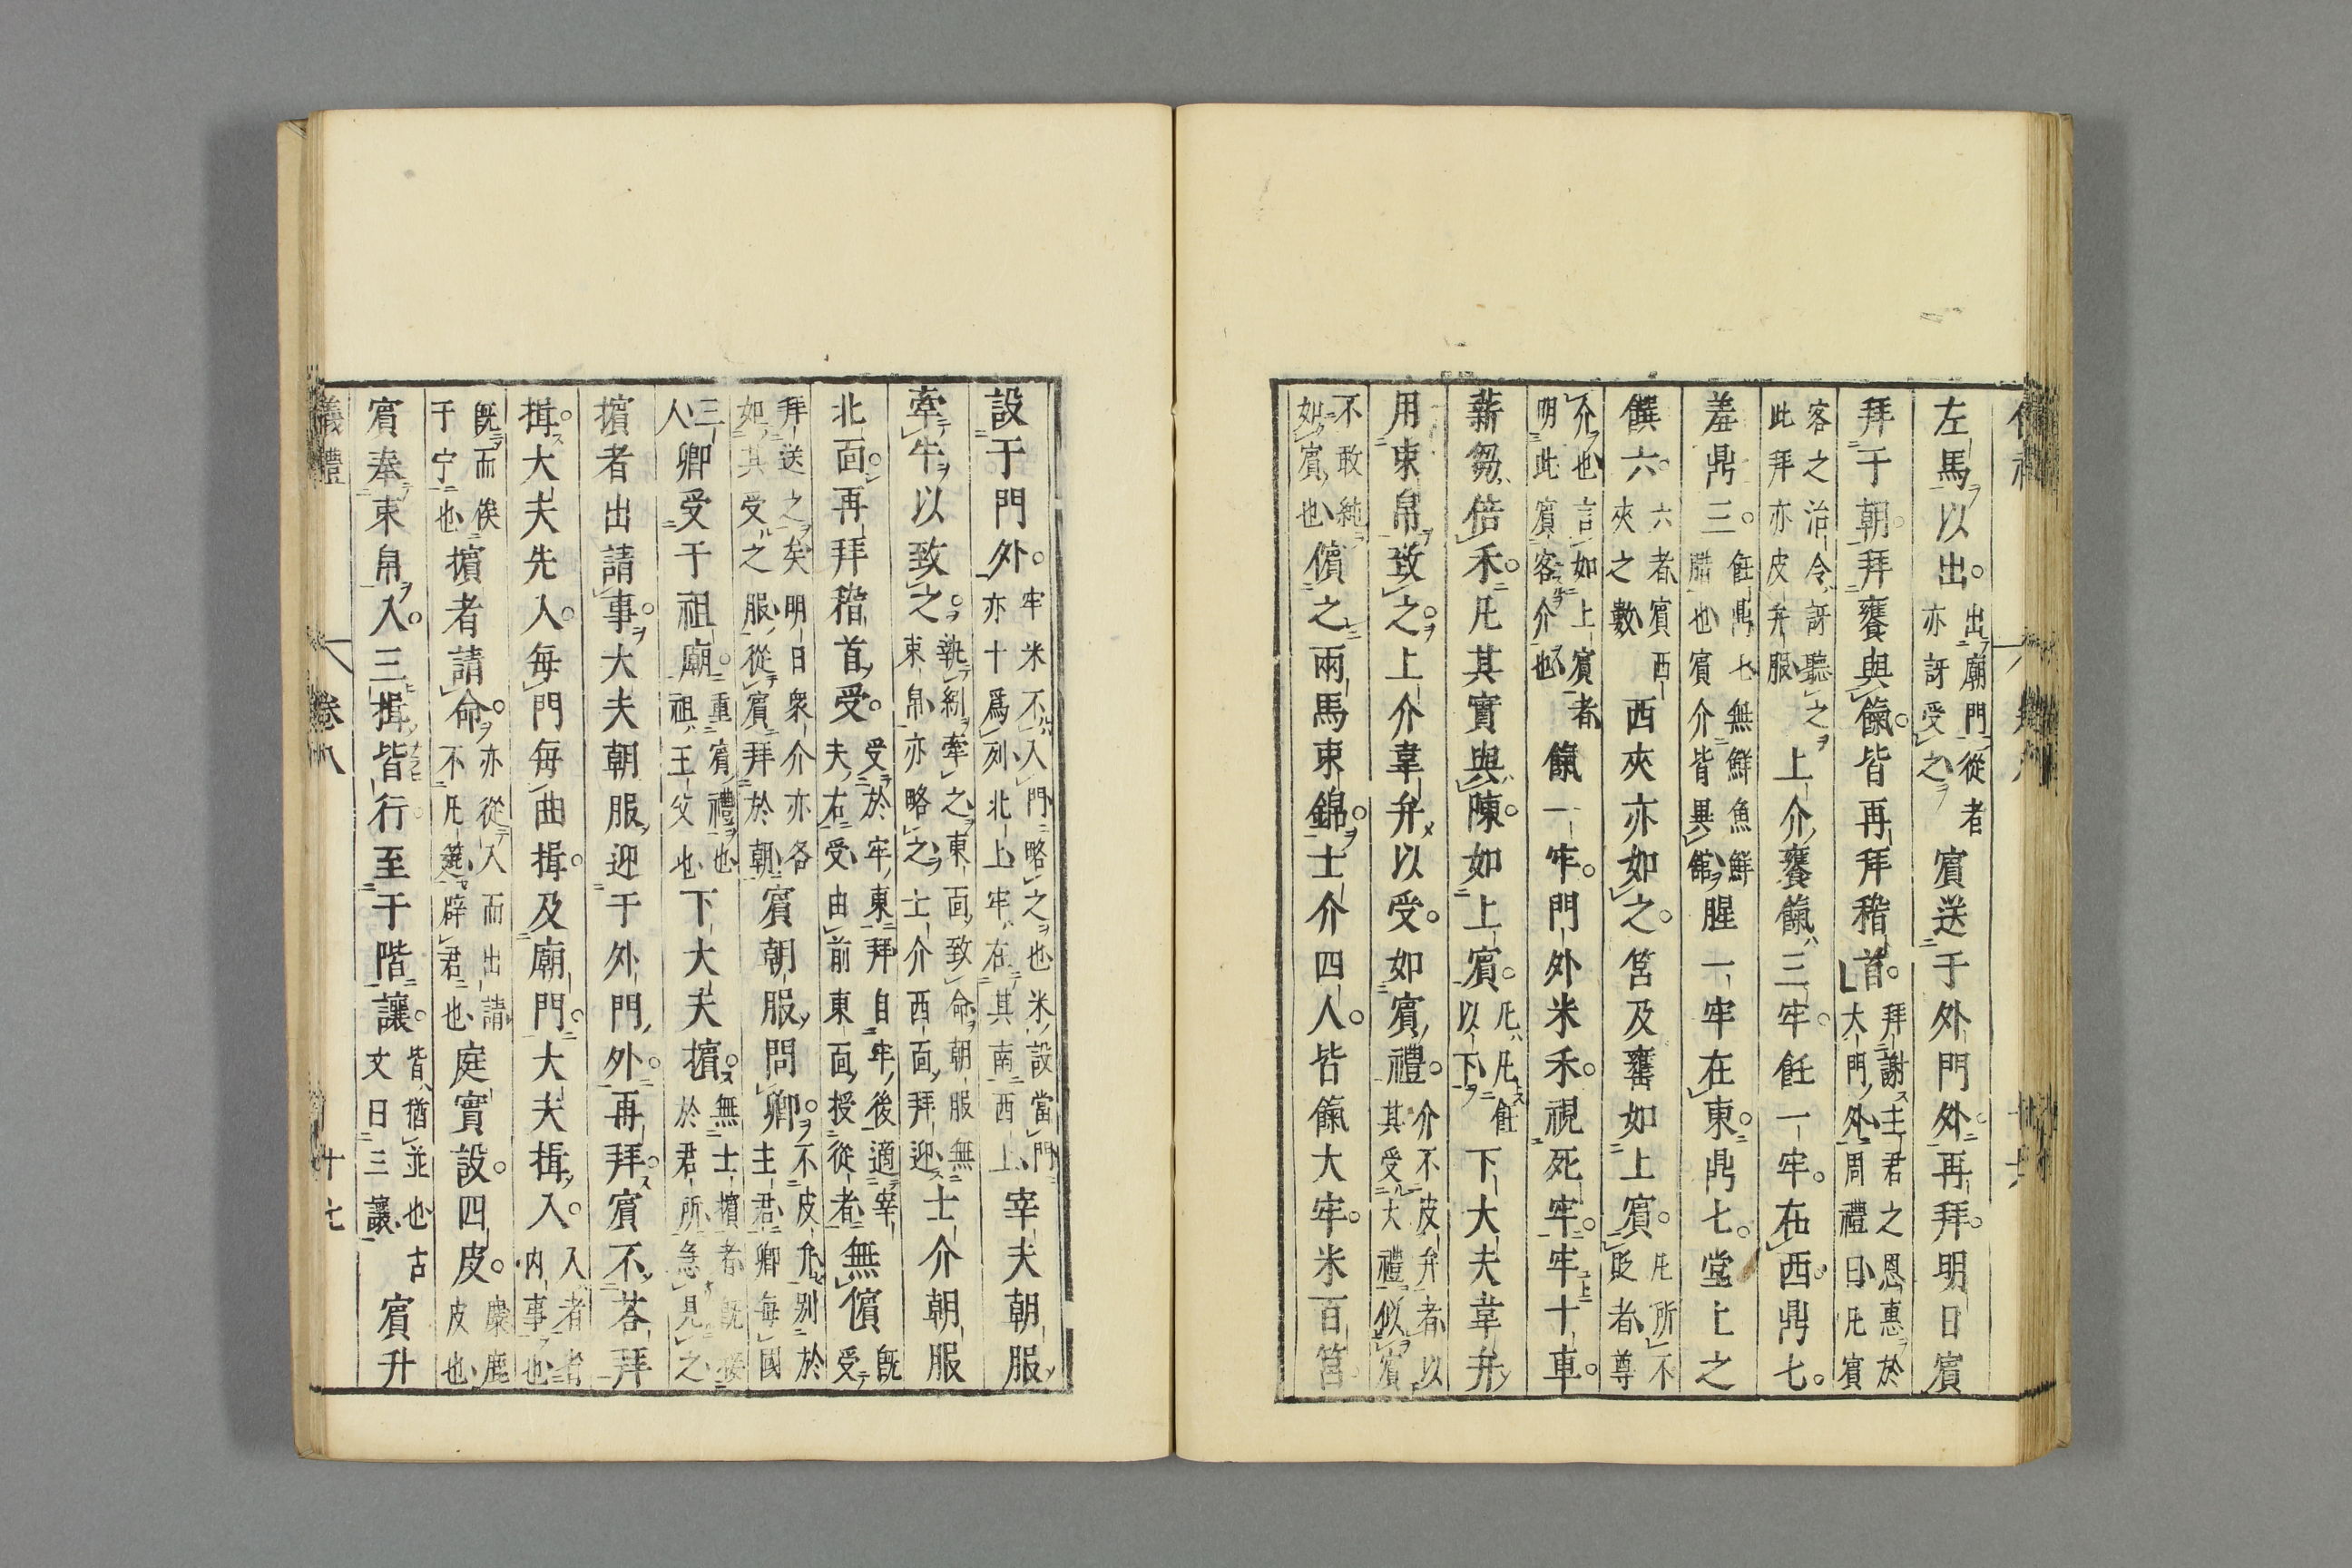 左馬以出。出廟門從者亦訝受之賓送于外門外再拜。明日賓
拜于朝。拜饔與餼。皆再拜稽首。拜謝主君之恩惠於大門外周禮曰凡賓
客之治令訝聽之此拜亦皮弁服上介饔餼三牢。飪一牢。在西。鼎七。
羞鼎三。飪鼎七無鮮魚鮮腊也賓介皆異館腥一牢在東。鼎七。堂上之
饌六。六者賓西夾之數西夾亦如之。筥及罋如上賓。凡所不貶者尊
介也言如上賓者明此賓客介也餼一牢。門外米禾。視死牢。牢十車。
薪芻倍禾。凡其實與陳。如上賓。凡凡飪以下下大夫韋弁
用束帛致之。上介韋弁以受。如賓禮。介不皮弁者以其受大禮似賓
不敢純如賓也儐之兩馬束錦。士介四人。皆餼大牢。米百筥
設于門外。牢米不入門略之也米設當門亦十爲列北上牢在其南西上宰夫朝服
牽牛以致之。執紖牽之東面致命朝服無束帛亦略之士介西面拜迎士介朝服
北面。再拜稽首受。受於牢東拜自牢後適宰夫右受由前東面授從者無儐既受
拜送之矣明日衆介亦各如其受之服從賓拜於朝賓朝服問卿。不皮弁別於主君卿每國
三人卿受于祖廟。重賓禮也祖王父也下大夫擯。無士擯者既接於君所急見之
擯者出請事。大夫朝服迎于外門外。再拜。賓不荅拜
揖。大夫先入。每門每曲揖。及廟門。大夫揖入。入者省内事也
既而俟于宁也擯者請命。亦從入而出請不几筵辟君也庭實設。四皮。麋鹿皮也
賓奉束帛入。三揖皆行。至于階讓。皆猶並也古文曰三讓賓升
儀禮 卷八 十七